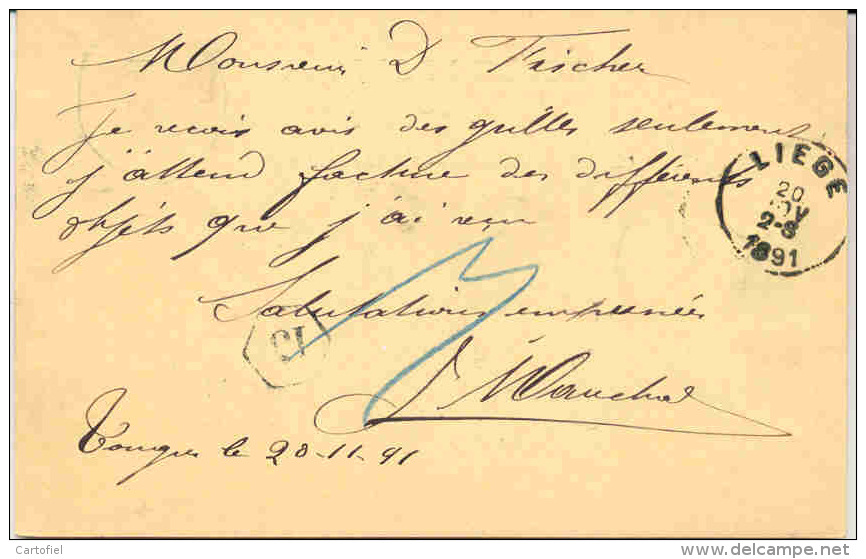 Monsieur D Fischer
Je reçois avis des grilles seulement
j'attend facture des différents
objets que j'ai reçu
Salutations empressées
Tongres le 20-11-91
LIEGE
20
NOV
2-8
1891
Cartofiel
www.delcampe.net